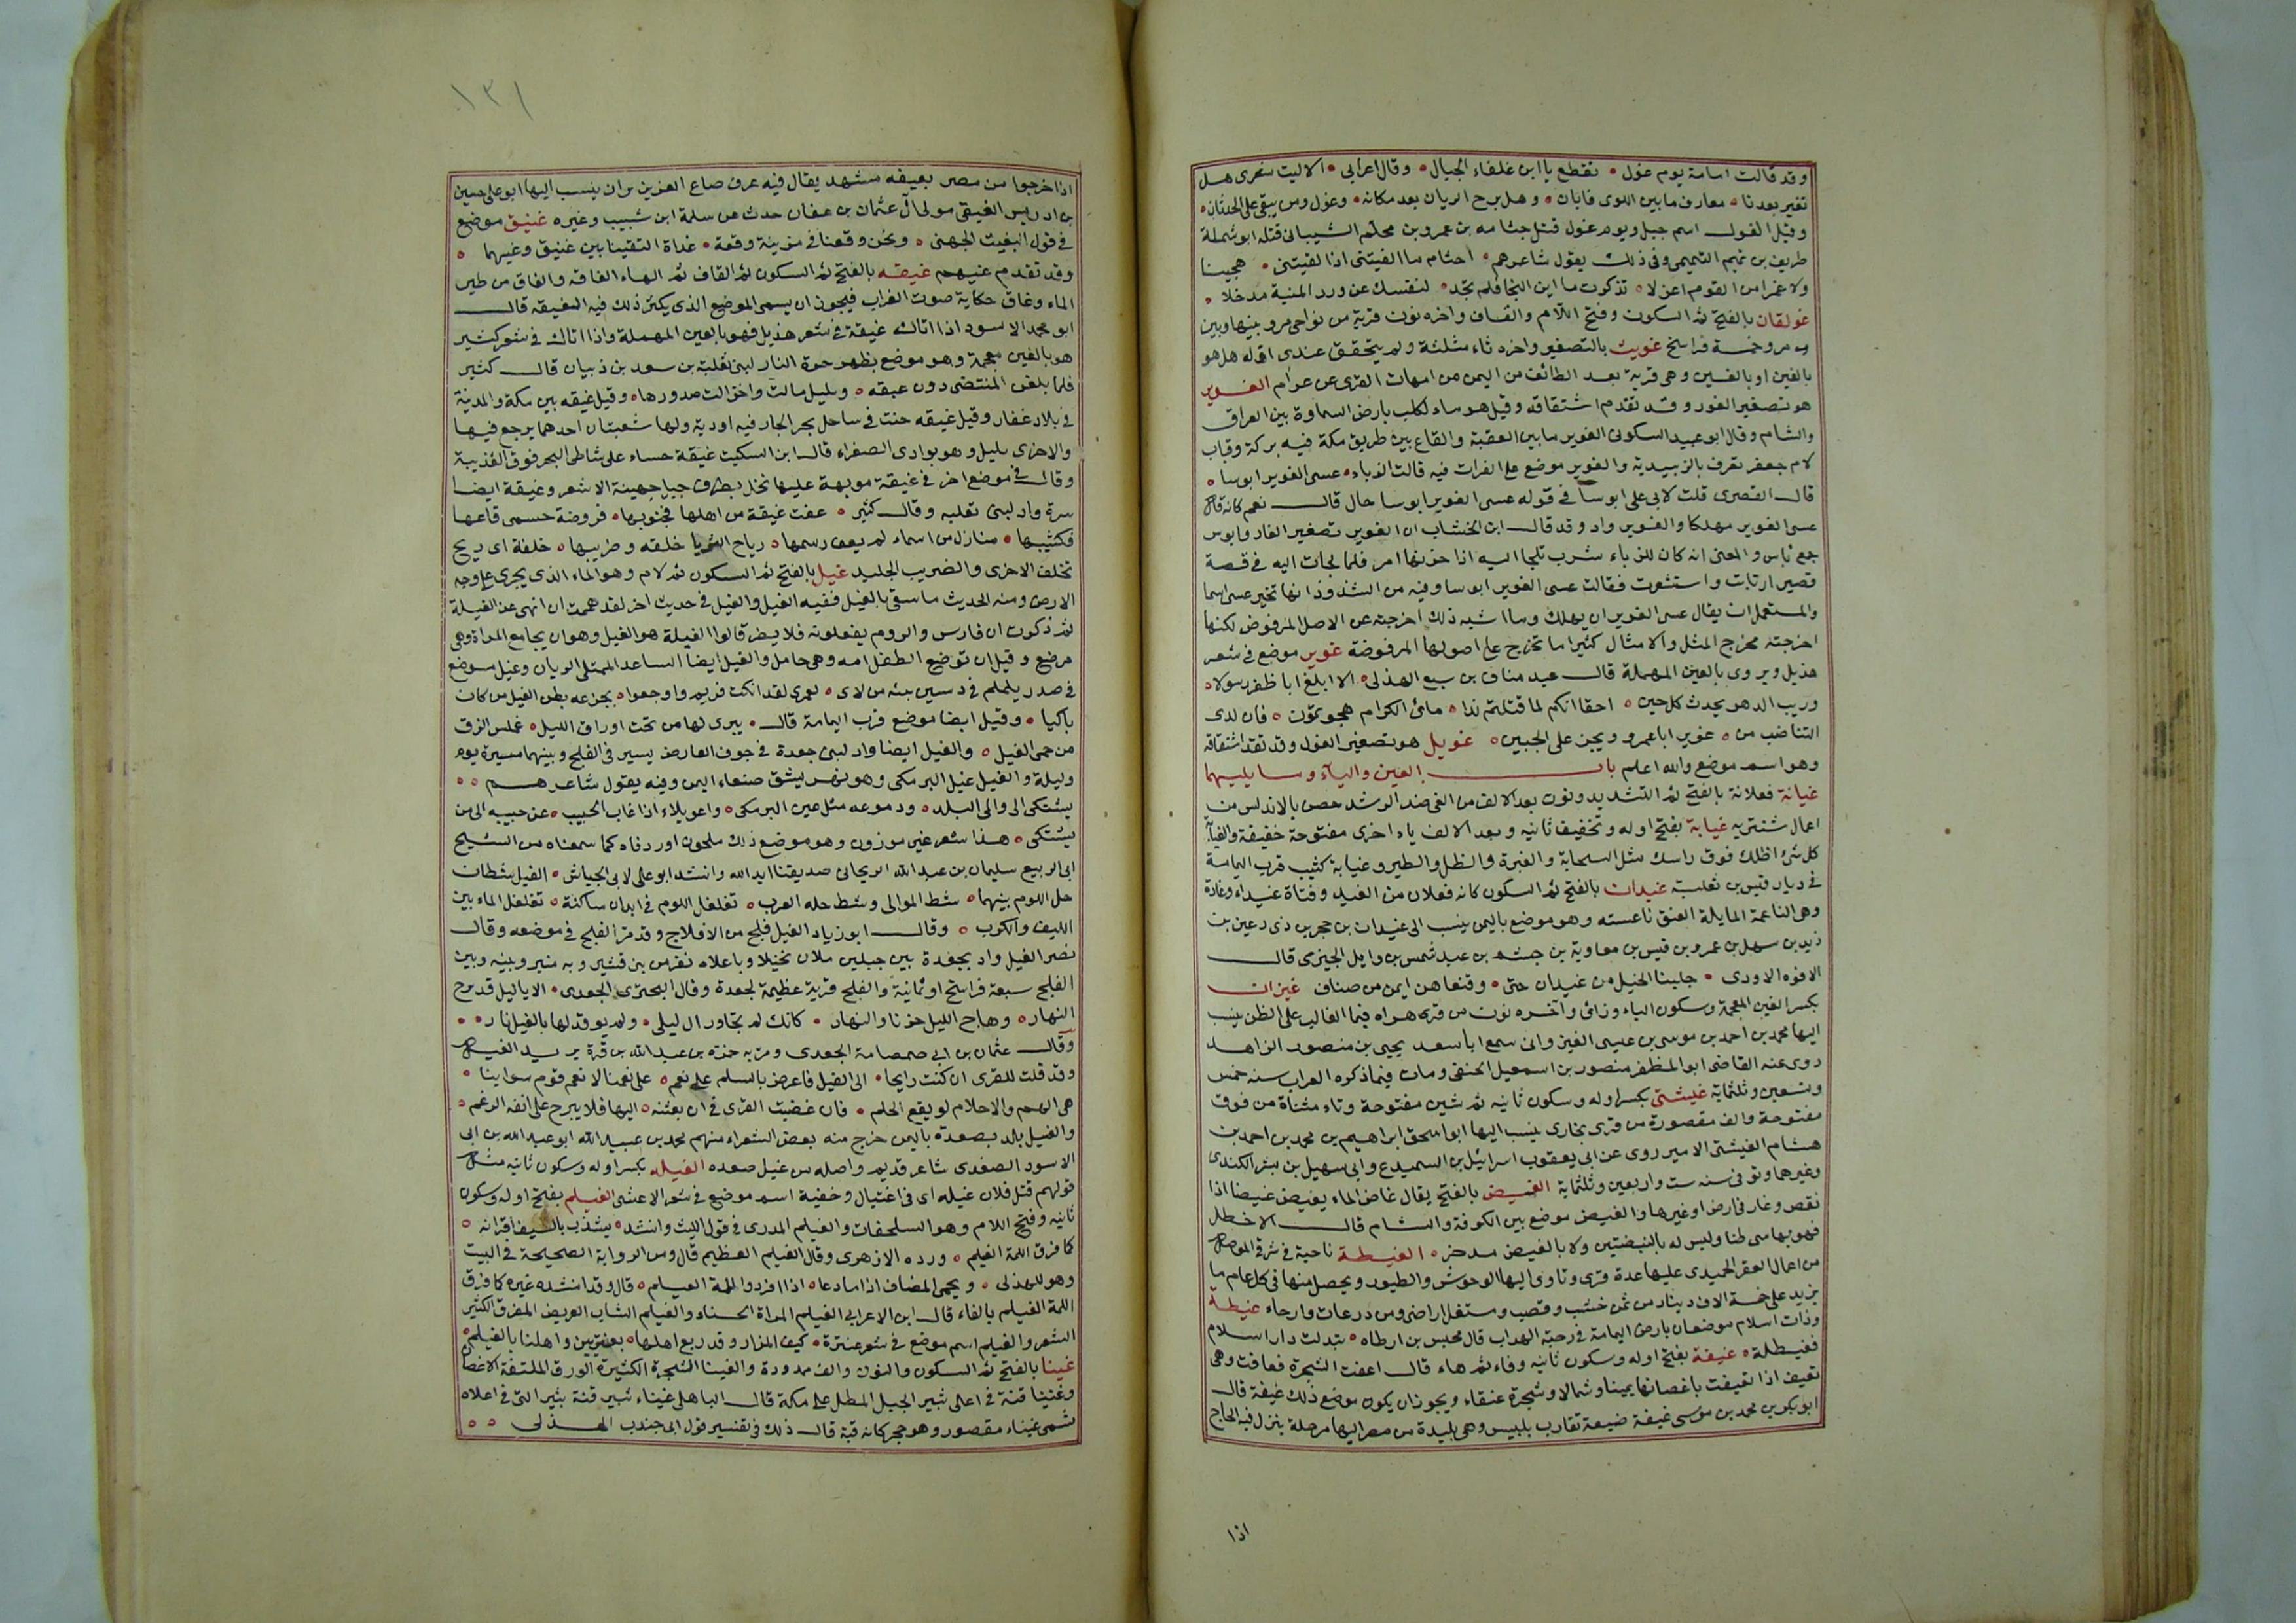 وقد قالت امامة يوم غول • تقطع يا ابن غلفاء الجبال • وقال اعرابى • الا ليت شعرى هل
تغير بعدنا • معارف ما بين اللوى فابان • وهل برح الريان بعد مكانه • وغول ومن يبقى على الحدثان •
وقيل الغول اسم جبل ويوم غول قتل جثامه بن عمرو بن محلم الشيبانى قتله ابو شملة
طريف بن تميم التميمى وفى ذلك يقول شاعرهم • اجثام ما الفيتنى اذ لقيتنى • هجينا
ولا غمرا من القوم اعزلا • تذكرت ما اين النجا فلم تجد • لنفسك عن ورد المنية مدخلا •
غولقان بالفتح ثم السكون وفتح اللام والقاف واخره نون قرية من نواحى مرو بينها وبين
مرو خمسة فراسخ غويث بالتصغير واخره ثاء مثلثة ولم يتحقق عندى اقوله هل هو
بالغين او بالعين وهى قرية بعد الطائف من اليمن من امهات القرى عن عرام الغوير
هو تصغير الغور وقد تقدم اشتقاقه وقيل هو ماء لكلب بارض السماوة بين العراق
والشام وقال ابو عبيد السكونى الغوير ما بين العقبة والقاع بين طريق مكة فيه بركة وقباب
لام جعفر تعرف بالزبيدية والغوير موضع على الفرات فيه قالت الزباء • عسى الغوير ابوسا •
قال القصرى قلت لابى على ابوسا فى قوله عسى الغوير ابوسا حال قال نعم كانه قال
عسى الغوير مهلكا والغوير واد وقد قال ابن الخشاب ان الغوير تصغير الغار وابوس
جمع باس والمعنى انه كان للزباء سرب تلجا اليه اذا حزنها امر فلما لجات اليه فى قصة
قصير ارتابت واستشعرت فقالت عسى الغوير ابوسا وفيه من الشذوذ انها تخير عسى اسما
والمستعمل ان يقال عسى الغوير ان يهلك وما اشبه ذلك اخرجته عن الاصل المرفوض لكنها
اخرجته مخرج المثل والامثال كثيرا ما تخرج على اصولها المرفوضة غوير موضع فى شعر
هذيل ويروى بالعين المهملة قال عبد مناف بن ربيع الهذلى • الا ابلغ ابا ظفر رسولا •
وريب الدهر يحدث كل حين • احقا انكم لما قتلتم ندا • مائ الكرام هجوتموت • فان لدى
التناضب من • غوير ابا عمرو ويجن على الجبين • غويل هو تصغير الغول وقد تقد اشتقاقه
وهو اسم موضع والله اعلم باب الغين والياء وما يليهما
غيانة فعلانة بالفتح ثم التشديد ونون بعد الالف من الغى ضد الرشد حصن بالاندلس من
اعمال شنتريه غيابة بفتح اوله وتخفيف ثانيه وبعد الالف ياء اخرى مفتوحة خفيفة والغيا
كل شئ اظلك فوق راسك مثل السحابة والغبرة والظل والطير وغيابة كثيب قرب اليمامة
فى ديار قيس بن ثعلبة غيدان بالفتح ثم السكون كانه فعلان من الغيد وفتاة غيداء وغادة
وهى الناعمة المايلة العنق ناعسته وهو موضع باليمن ينسب الى غيدان بن حجر بن ذى رعين بن
زيد بن سهل بن عمرو بن قيس بن معاوية بن جشم بن عبد شمس بن وايل الحيرى قال
الافوه الاودى • جلبنا الخيل من غيدان حتى • وقفناهن ايمن من صناف غيزان
بكسر الغين المعجمة وسكون الياء وزائ وآخره نون من قرى هراه فيما الغالب على الظن ينسب
اليها محمد بن احمد بن موسى بن عيسى الغيزانى سمع ابا سعد يحيى بن منصور الزاهد
روى عنه القاضى ابو المظفر منصور بن اسمعيل الحنفى ومات فيما ذكره العراب سنه خمس
وتسعين وثلثماية غيشتى بكسر اوله وسكون ثانيه ثم شين مفتوحة وتاء مثناة من فوق
مفتوحة والف مقصورة من قرى بخارى ينسب اليها ابو اسحق ابراهيم بن محمد بن احمد بن
هشام الغيشتى الامير روى عن ابى يعقوب اسرائيل بن السميدع وابى سهيل بن بشر الكندى
وغيرهما وتوفى سنه ست واربعين وثلثماية الغيض بالفتح يقال غاض الماء يغيض غيضا اذا
نقص وغار فى ارض او غيرها والغيض موضع بين الكوفة والشام قال الاخطل
فهو بها سى ظنا وليس له بالبيضتين ولا بالغيض مدخر • الغيطة ناحية فى شرقى الموصل
من اعمال العقر الحميدى عليها عدة قرى وتاوى اليها الوحوش والطيور ويحصل منها فى كل عام ما
يزيد على خمسة الاف دينار من ثمن خشب وقصب ومستغل اراضى ومن درعات وارحاء غيطة
وذات اسلام موضعان بارض اليمامة فى رحبة الهداب قال مخيس بن ارطاه • تبدلت دار اسلام
فغيطلة • غيفة بفتح اوله وسكون ثانيه وفاء ثم هاء قال اعفت الشجرة فغافت وهى
تغيف اذا تغيفت باغصانها يمينا وشمالا وشجرة غنقاء ويجوز ان يكون موضع ذلك غيفة قال
ابو بكر بن محمد بن موسى غيفة ضيعة تقارب بلبيس وهى بليدة من مصر اليها مرحلة ينزل فيه الحاج
اذا
١٣١
اذا خرجوا من مصر بغيفه مشهد يقال فيه عرف صاع العزيز بران ينسب اليها ابو على حسين
بن ادريس الغيفى مولى آل عثمان بن عفان حدث عن سلمة ابن شبيب وغيره غنيق موضع
فى قول البغيت الجهنى • ونحن وقعنا فى مزينة وقعة • غداة التقينا بين غنيق وغيهما •
وقد تقدم غيهم غيقه بالفتح ثم السكون ثم القاف ثم الهاء الغاقه والغاق من طير
الماء وغاق حكاية صوت الغراب فيجوز ان يسمى الموضع الذى يكثر ذلك فيه الغيقه قال
ابو محمد الاسود اذا اتاك غيقة فى شعر هذيل فهو بالعين المهملة واذا اتاك فى شعر كثير
هو بالغين معجمة وهو موضع بظهر حرة النار لبنى ثعلبة بن سعد بن ذبيان قال كثير
فلما بلغن المنتضى دون غيقه • ويليل مالت واخزالت صدورها • وقيل غيقه بين مكة والمدينة
فى بلاد غفار وقيل غيقه خبت فى ساحل بحر الجار فيه اودية ولها شعبتان احدهما يرجع فيها
والاخرى يليل وهو بوادى الصفراء قال ابن السكيت غيقة حساء على شاطى البحر فوق العذيبة
وقال فى موضع اخر فى غيقة مويهة عليها نخل بطرف جبل جهينة الاشعر وغيقة ايضا
سرة واد لبنى ثعلبه وقال كثير • عفت غيقة من اهلها فجنوبها • فروضة حسمى قاعها
فكثيبها • منازل من اسماء لم يعف رسمها • رياح الثريا خلفه وضريبها • خلفة اى ريح
تخلف الاخرى والضريب الجليد غيل بالفتح ثم السكون ثم لام وهو الماء الذى يجرى على وجه
الارض ومنه الحديث ما سقى بالغيل ففيه الغيل والغيل فى حديث اخر لقد هممت ان انهى عن الغيلة
ثم ذكرت ان فارس والروم يفعلونه فلا يضر قالوا الغيلة هو الغيل وهو ان يجامع المراة وهى
مرضع وقيل ان توضع الطفل امه وهى حامل والغيل ايضا الساعد الممتلى الريان وغيل موضع
فى صدر يلملم فى دسين بنه من لاى • لعمرى لقد انكت قريم واوجعوا • بجزعه بطن الغيل من كان
باكيا • وقيل ايضا موضع قرب اليمامة قال • يبرى لها من تحت اوراق الليل • غملس الزق
من حمى الغيل • والغيل ايضا واد لبنى جعدة فى جوف العارض يسير فى الفلج وبينهما مسيرة يوم
وليلة والغيل غيل البرمكى وهو نهر يشق صنعاء اليمن وفيه يقول شاعرهم • •
يشتكى الى والى البلد • ودموعه مثل عين البرمكى • واعويلاه اذا غاب الحبيب • عن حبيبه الى من
يشتكى • هذا شعر غير موزون وهو موضع ذلك ملحون اوردناه كما سمعناه من الشيخ
ابى الربيع سليمان بن عبد الله الريحانى صديقنا ايد الله وانشد ابو على لابى الجياش • الغيل شطان
حل اللوم بينهما • شط الموالى وشط حله العرب • تغلغل اللوم فى ابدان ساكنة • تغلغل الماء بين
الليف والكرب • وقال ابو زياد الغيل فلج من الافلاج وقد مر الفلج فى موضعه وقال
نصر الغيل واد بجعدة بين جبلين ملان نخيلا وباعلاه نفر من بنى قشير وبه منبر وبينه وبين
الفلج سبعة فراسخ او ثمانية والفلج قرية عظيمة لجعدة وقال البحترى الجعدى • الا يا ليل قد برح
النهار • وهاج الليل حزنا والنهار • كانك لم تجاور ال ليلى • ولم يوقد لها بالغيل نار • •
وقال عثمان بن ابى صمصامة الجعدى ومر به حمزة بن عبد الله بن قرة يريد الغيل
وقد قلت للقرى ان كنت رايحا • الى الغيل فاعرض بالسلم على نعم • على نعمنا لا نعم قوم سواينا •
هى الهم والاحلام لو يقع الحلم • فان غضبت القرى فى ان بعثنه • اليها فلا يبرح على انفه الرغم •
والغيل بلد بصعدة باليمن خرج منه بعض الشعراء منهم محمد بن عبيد الله ابو عبد الله بن ابى
الاسود الصعدى شاعر قديم واصله من غيل صعده الغيله بكسر اوله وسكون ثانيه مثل
قولهم قتل فلان غيله اى فى اغتيال وخفية اسم موضع فى شعر الاعشى الغيلم بفتح اوله وسكون
ثانيه وفتح اللام وهو السلحفات والغيلم المدرى فى قول الليث وانشد • يشذب بالسيف اقرانه •
كما فرق اللمة الغيلم • ورده الازهرى وقال الغيلم العظيم قال ومن الرواية الصحيحة فى البيت
وهو للهذلى • ويحمى المضاف اذا ما دعا • اذا افردوا اللمة العيلم • قال وقد انشده غيره كما فرق
اللمة الفيلم بالفاء قال ابن الاعرابى الغيلم المراة الحسناء والغيلم الشاب العريض المفرق الكثير
الشعر والغيلم اسم موضع فى شعر عنترة • كيف المزار وقد تربع اهلها • بعنيزتين واهلنا بالغيلم •
غينا بالفتح ثم السكون والنون والف ممدودة والغينا الشجرة الكثيرة الورق الملتفة الاغصان
وغينا قنة فى اعلى ثبير الجبل المطل على مكة قال الباهلى غيناء ثبير قنة بثير التى فى اعلاه
تسمى غيناء مقصور وهو حجر كانه قبة قال ذلك فى تفسير قول ابى جندب الهذلى • •